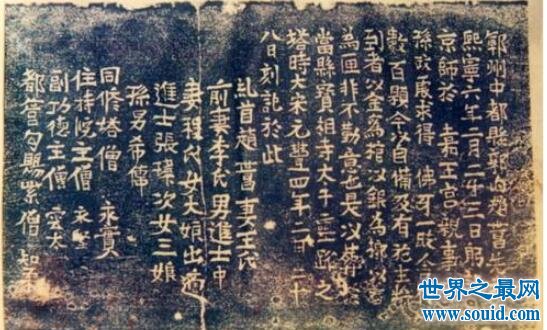 鄆州中都縣郭 趙世昌先
熙寧六年二月二十三日躬
京師於 嘉王宮親事
孫政處求得 佛牙一枚
數百顆今以自備及有施主施
到者以金為棺以銀為槨以
為匣非不勤意也是以葬
當縣寶相寺大 二三 之
塔時大宋元豐四年 月二十
八日刻記於此
趙世昌妻王氏
前妻李氏男進士中
妻程氏女大娘出適
進士張 次女三娘
孫男希傅
同修塔僧 永
住持院主僧 永
副功德主僧 雲太
都管勾賜紫僧知
世界之最网
www.souid.com